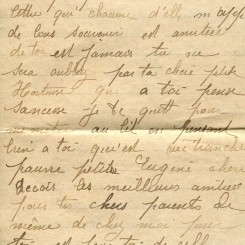 cette que chacune d'elle m'a
de tous souvenir est amitiée
de toi est jamais tu ne
sera oublier par ta chère petite
Hortense que a toi pense
sancesse je te quitt pour
me mettre au lit en pensant
bien a toi qu'est
pauvre petite Eugène chéri
Recois les meilleurs amitiée
pour tes chers parents de
même de chez moi pour
toi